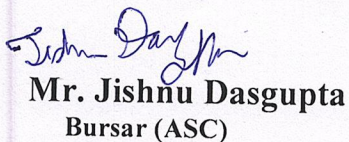 Jishnu Dasgupta
Mr. Jishnu Dasgupta
Bursar (ASC)